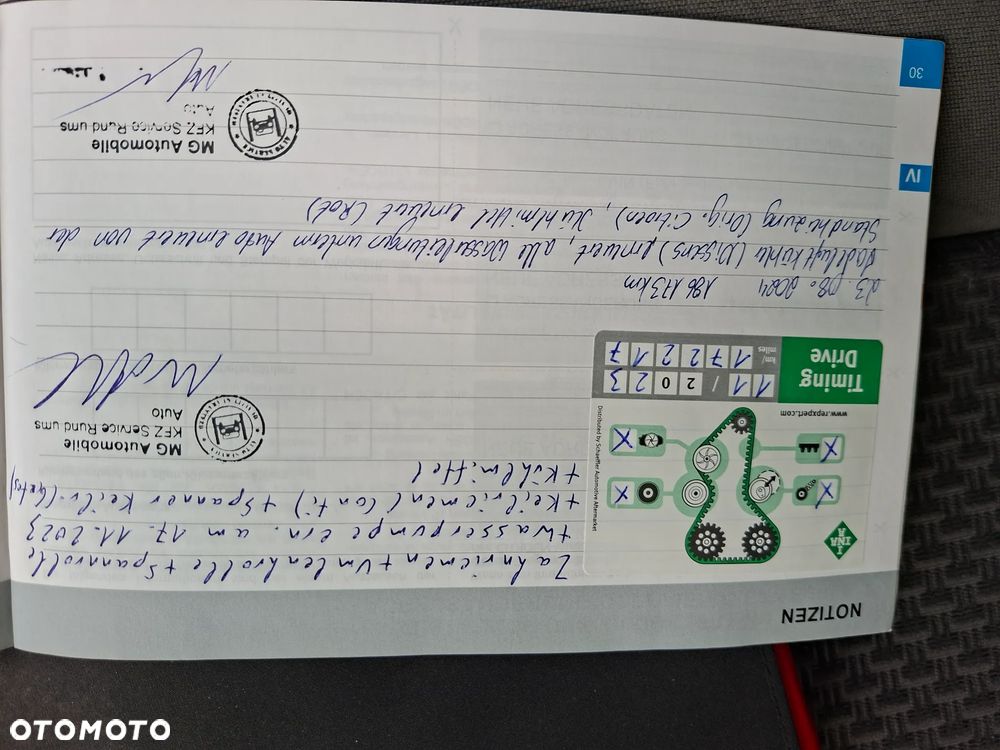 NOTIZEN
Zahnriemen + Umlenkrolle + Spannrolle
+ Wasserpumpe ern. am 17.11.2023
+ Keilriemen (Conti) + Spanner Keilr. (Gates)
+ Kühlmittel
INA
www.repxpert.com
Distributed by Schaeffler Automotive Aftermarket
Timing
Drive
11 / 2023
km/
miles
172217
MG Automobile
KFZ Service Rund ums
Auto
AUTO SERVICE
23.08.2024 186173km
Ladeluftkühler (Nissens) erneuert, alle Wasserleitungen unterm Auto erneuert von der
Standheizung (Orig. Citroen), Kühlmittel erneuert (Rot)
MG Automobile
KFZ Service Rund ums
Auto
AUTO SERVICE
IV
30
OTOMOTO